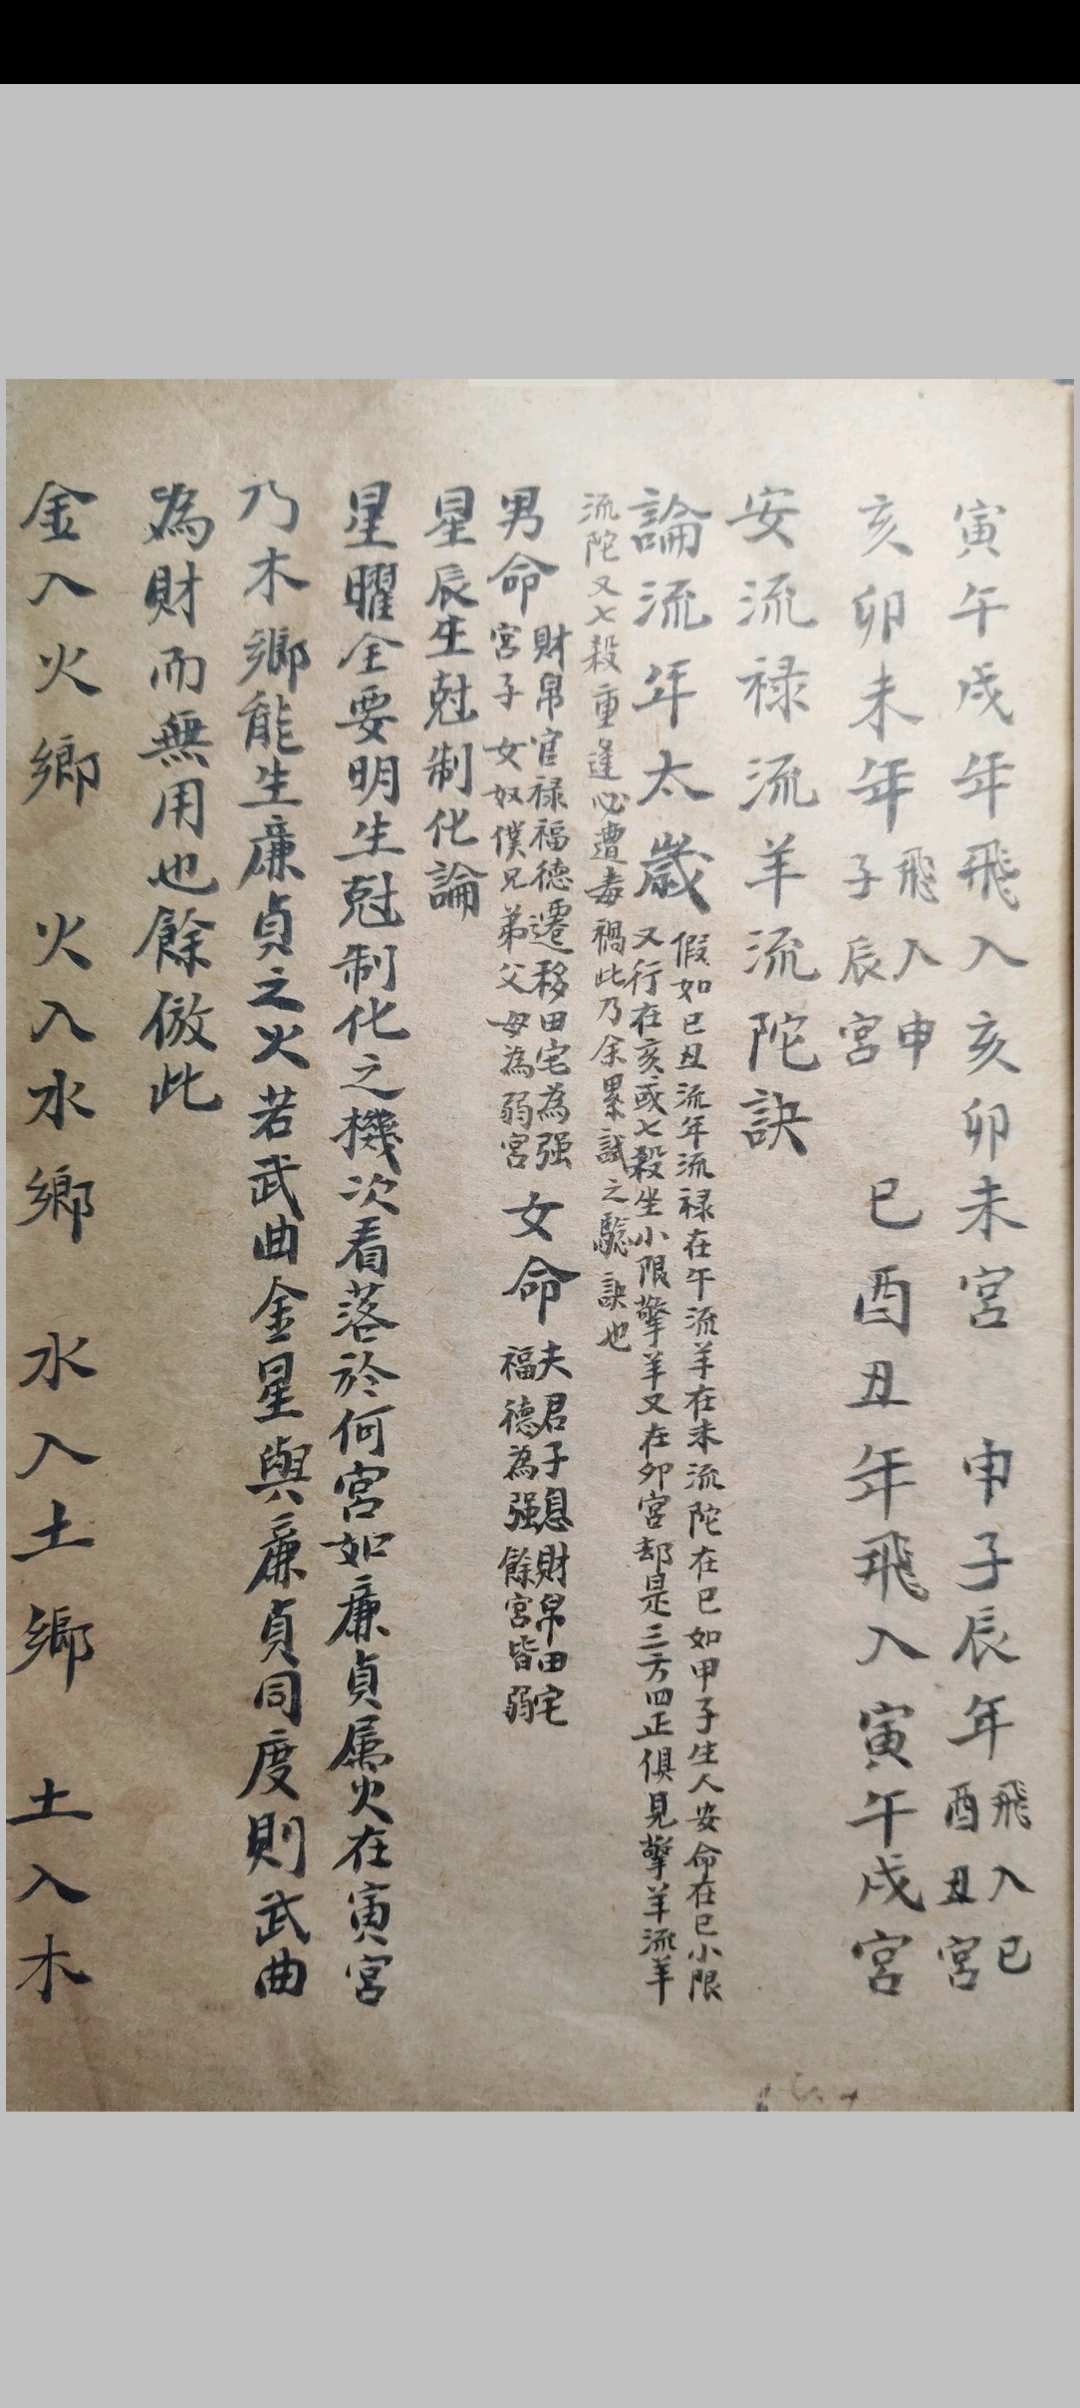 寅午戌年飛入亥卯未宮　申子辰年飛入巳酉丑宮
亥卯未年飛入申子辰宮　巳酉丑年飛入寅午戌宮
安流禄流羊流陀訣
論流年太歲
假如己丑流年流禄在午流羊在未流陀在巳如甲子生人安命在巳小限
又行在亥或七殺坐小限擎羊又在卯宮却是三方四正俱見擎羊流羊
流陀又七殺重逢必遭毒禍此乃余累試之騐訣也
男命　財帛官禄福德遷移田宅為强
宮子女奴僕兄弟父母為弱宮
女命　夫君子息財帛田宅
福德為强餘宮皆弱
星辰生尅制化論
星曜全要明生尅制化之機次看落於何宮如廉貞属火在寅宮
乃木鄉能生廉貞之火若武曲金星與廉貞同度則武曲
為財而無用也餘倣此
金入火鄉　火入水鄉　水入土鄉　土入木